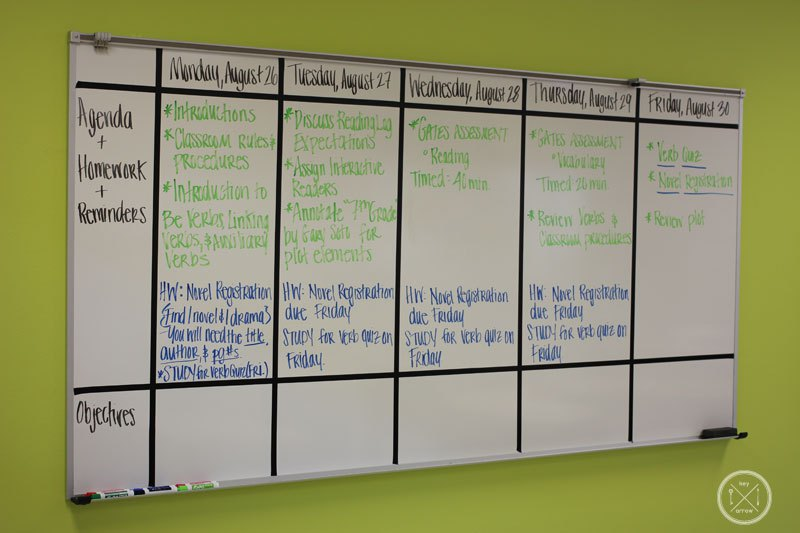 Monday, August 26
Tuesday, August 27
Wednesday, August 28
Thursday, August 29
Friday, August 30
Agenda
+
Homework
+
Reminders
*Introductions
*Classroom Rules &
Procedures
*Introduction to
Be Verbs, Linking
Verbs, & Auxiliary
Verbs
HW: Novel Registration
{Find 1 novel & 1 drama}
You will need the title,
author, & pg #s.
*STUDY for Verb Quiz (FRI.)
*Discuss Reading Log
Expectations
*Assign Interactive
Readers
*Annotate "7th Grade"
by Gary Soto for
plot elements
HW: Novel Registration
due Friday
STUDY for verb quiz on
Friday.
*GATES ASSESSMENT
Reading
Timed: 40 min.
HW: Novel Registration
due Friday
STUDY for verb quiz on
Friday
*GATES ASSESSMENT
Vocabulary
Timed: 20 min.
*Review Verbs &
Classroom procedures
HW: Novel Registration
due Friday
STUDY for verb quiz on
Friday.
* Verb Quiz
* Novel Registration
*Review plot
Objectives
hey
arrow